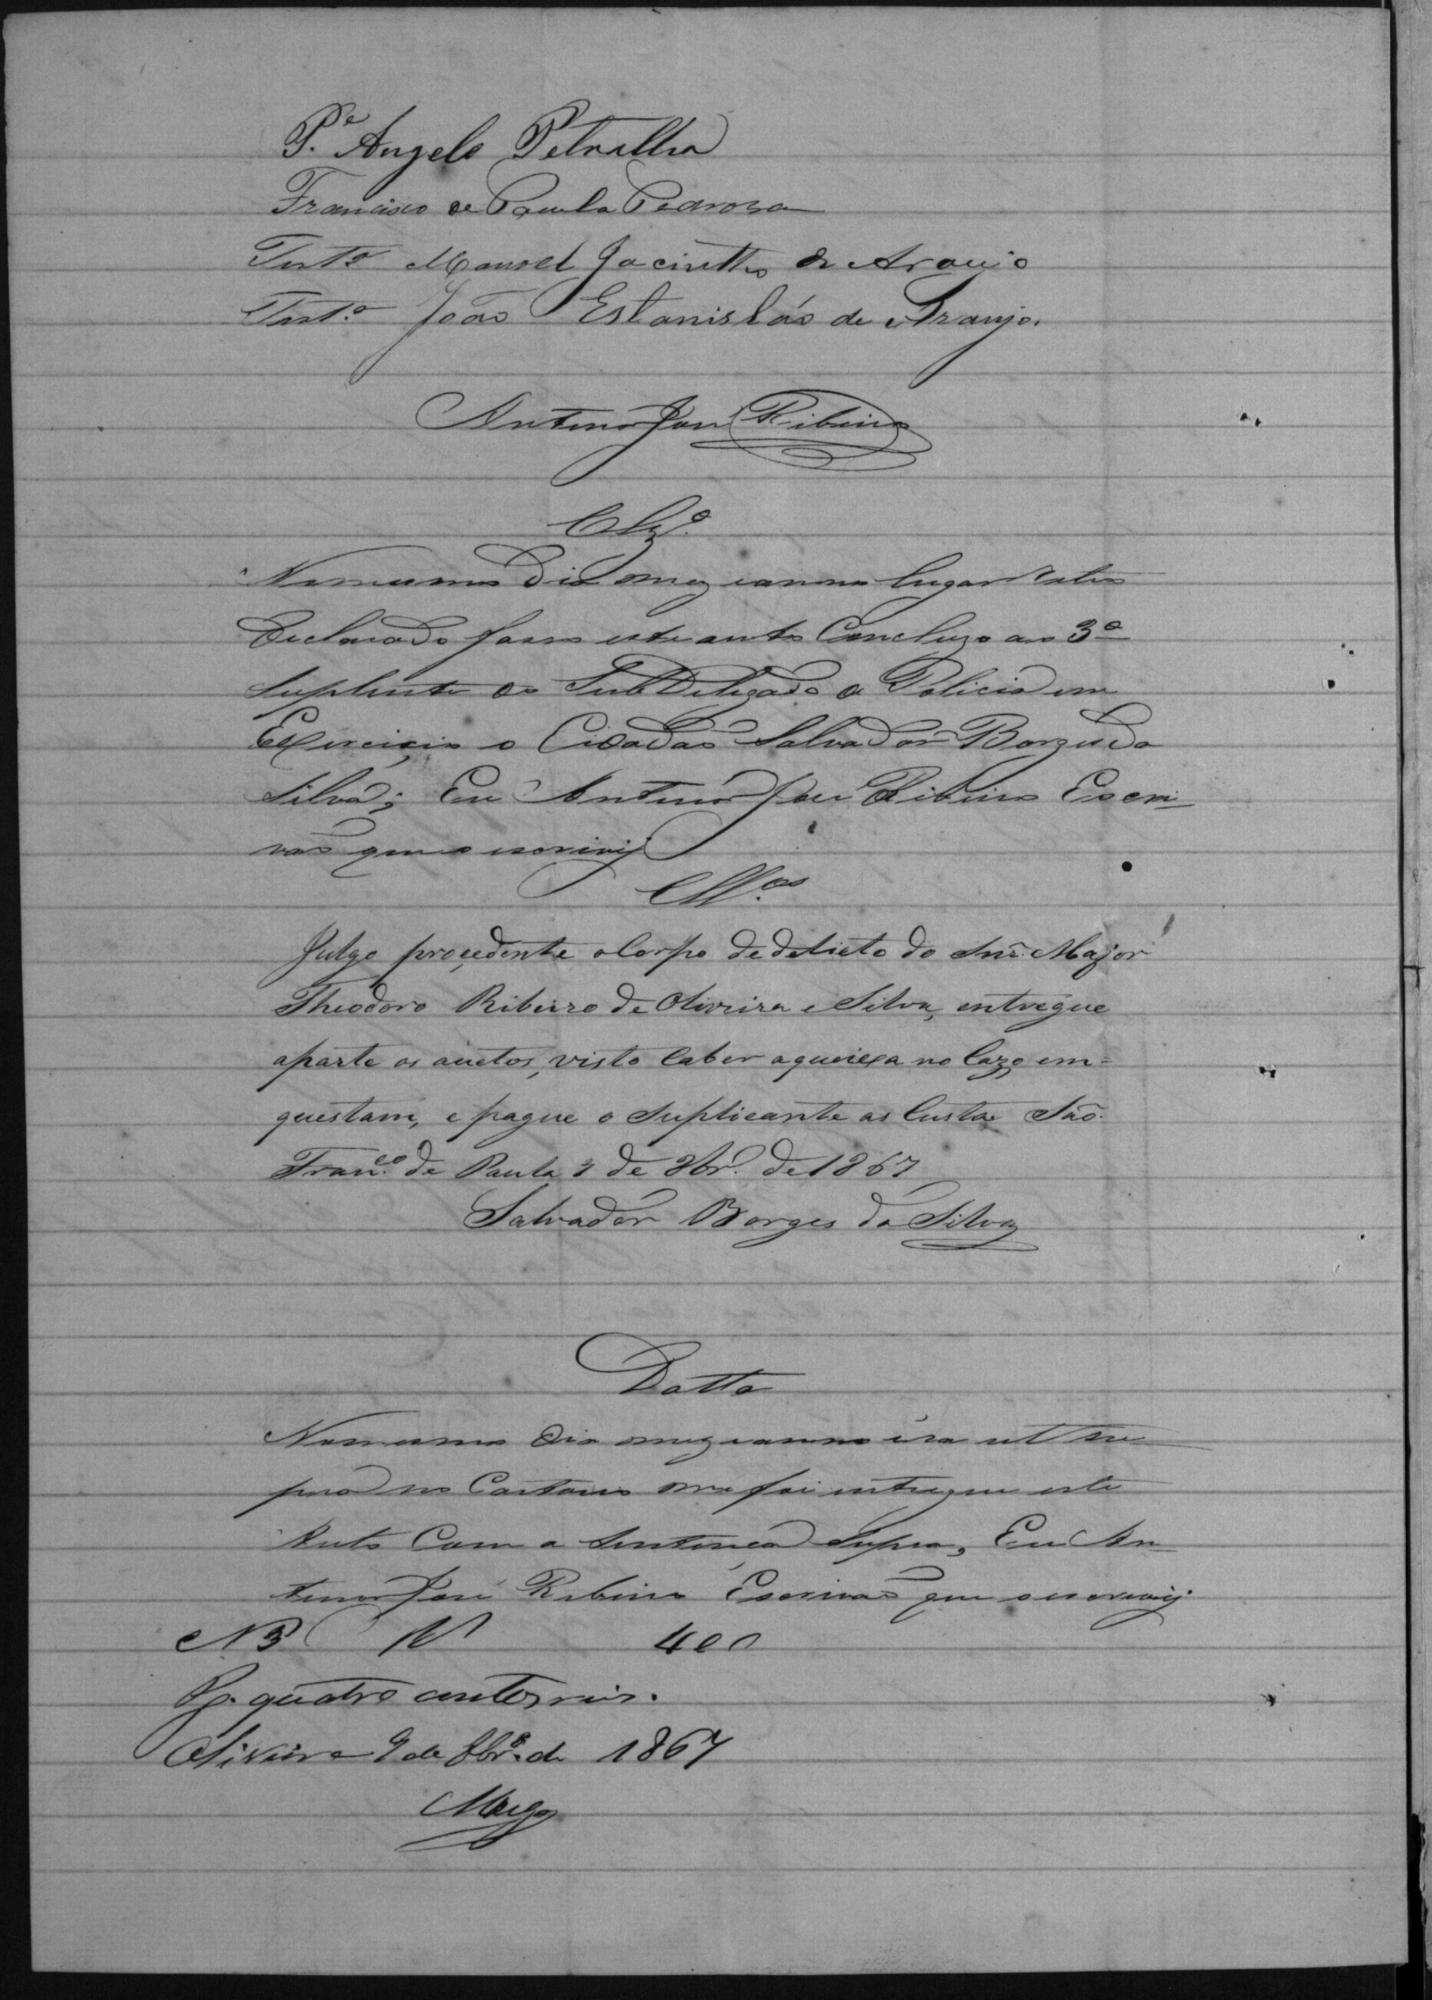 P.e Angelo Petrallia
Francisco de Paula Pedroza
Test.o Manoel Jacintho de Araujo
Test.o João Estanisláo de Araujo.
Antonio José Ribeiro
Clz.o
No mesmo dia mez e anno lugar retro
declarado faço este auto Concluzo ao 3.o
Suplente do SubDelegado de Policia em
Exercicio o Cidadão Salvador Borges da
Silva; Eu Antonio José Ribeiro Escri-
vão que o escrivij
Cll.os
Julgo procedente o Corpo de delicto do Snr. Major
Theodoro Ribeiro de Oliveira e Silva, entregue
aparte os auctos, visto Caber aqueixa no Cazo em=
questam, e pague o Suplicante as Custas São
Fran.co de Paula 3 de 8br.o de 1867
Salvador Borges da Silva
Datta
No mesmo dia mez e anno éra ut su
pra no Cartorio me foi entregue este
Auto Com a Sentença Supra, Eu An
tonio José Ribeiro Escrivão que o escrivij
N 3 400
Pg. quatro centos reis.
Oliveira 9 de 8br.o de 1867